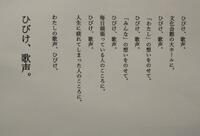 ひびけ、歌声。
文化会館の大ホールに。
ひびけ、歌声。
「わたし」の想いをのせて。
ひびけ、歌声。
「みんな」の想いをのせて。
ひびけ、歌声。
毎日頑張っている人のこころに。
ひびけ、歌声。
人生に疲れてしまった人のこころに。
わたしの歌声、ひびけ。
ひびけ、歌声。